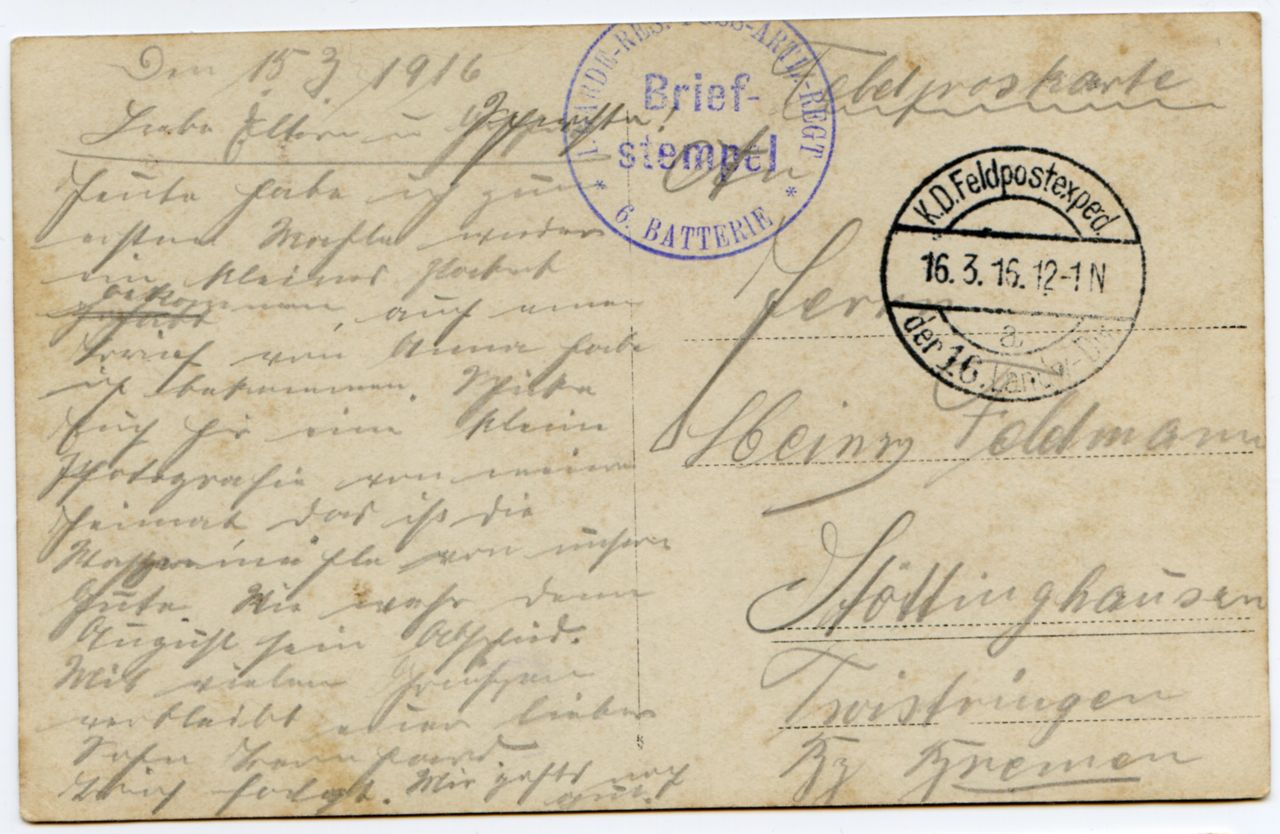 Den 15 3 1916
Liebe Eltern u Geschwister!
Heute habe ich zum
ersten Mahle wieder
ein kleines Packet
bekommen, auch einen
Brief von Anna habe
ich bekommen. Schicke
Euch hir eine kleine
Photografie von meine
Heimat das ist die
von unsere
Wie wahr denn
August sein Abschied.
Mit vielen Grüßen
verbleibt euer lieber
Sohn Bernhard
Brief folgt. Mir gehts noch
gut.
GARDE-RES. FUSS-ARTL.-REGT
Brief-
stempel
* 6. BATTERIE *
Feldpostkarte
An
K.D. Feldpostexped.
16. 3. 16. 12-1 N
a.
der 16. Landw.-Div.
Herrn
Heinr Feldmann
Stöttinghausen
Twistringen
Bz Bremen